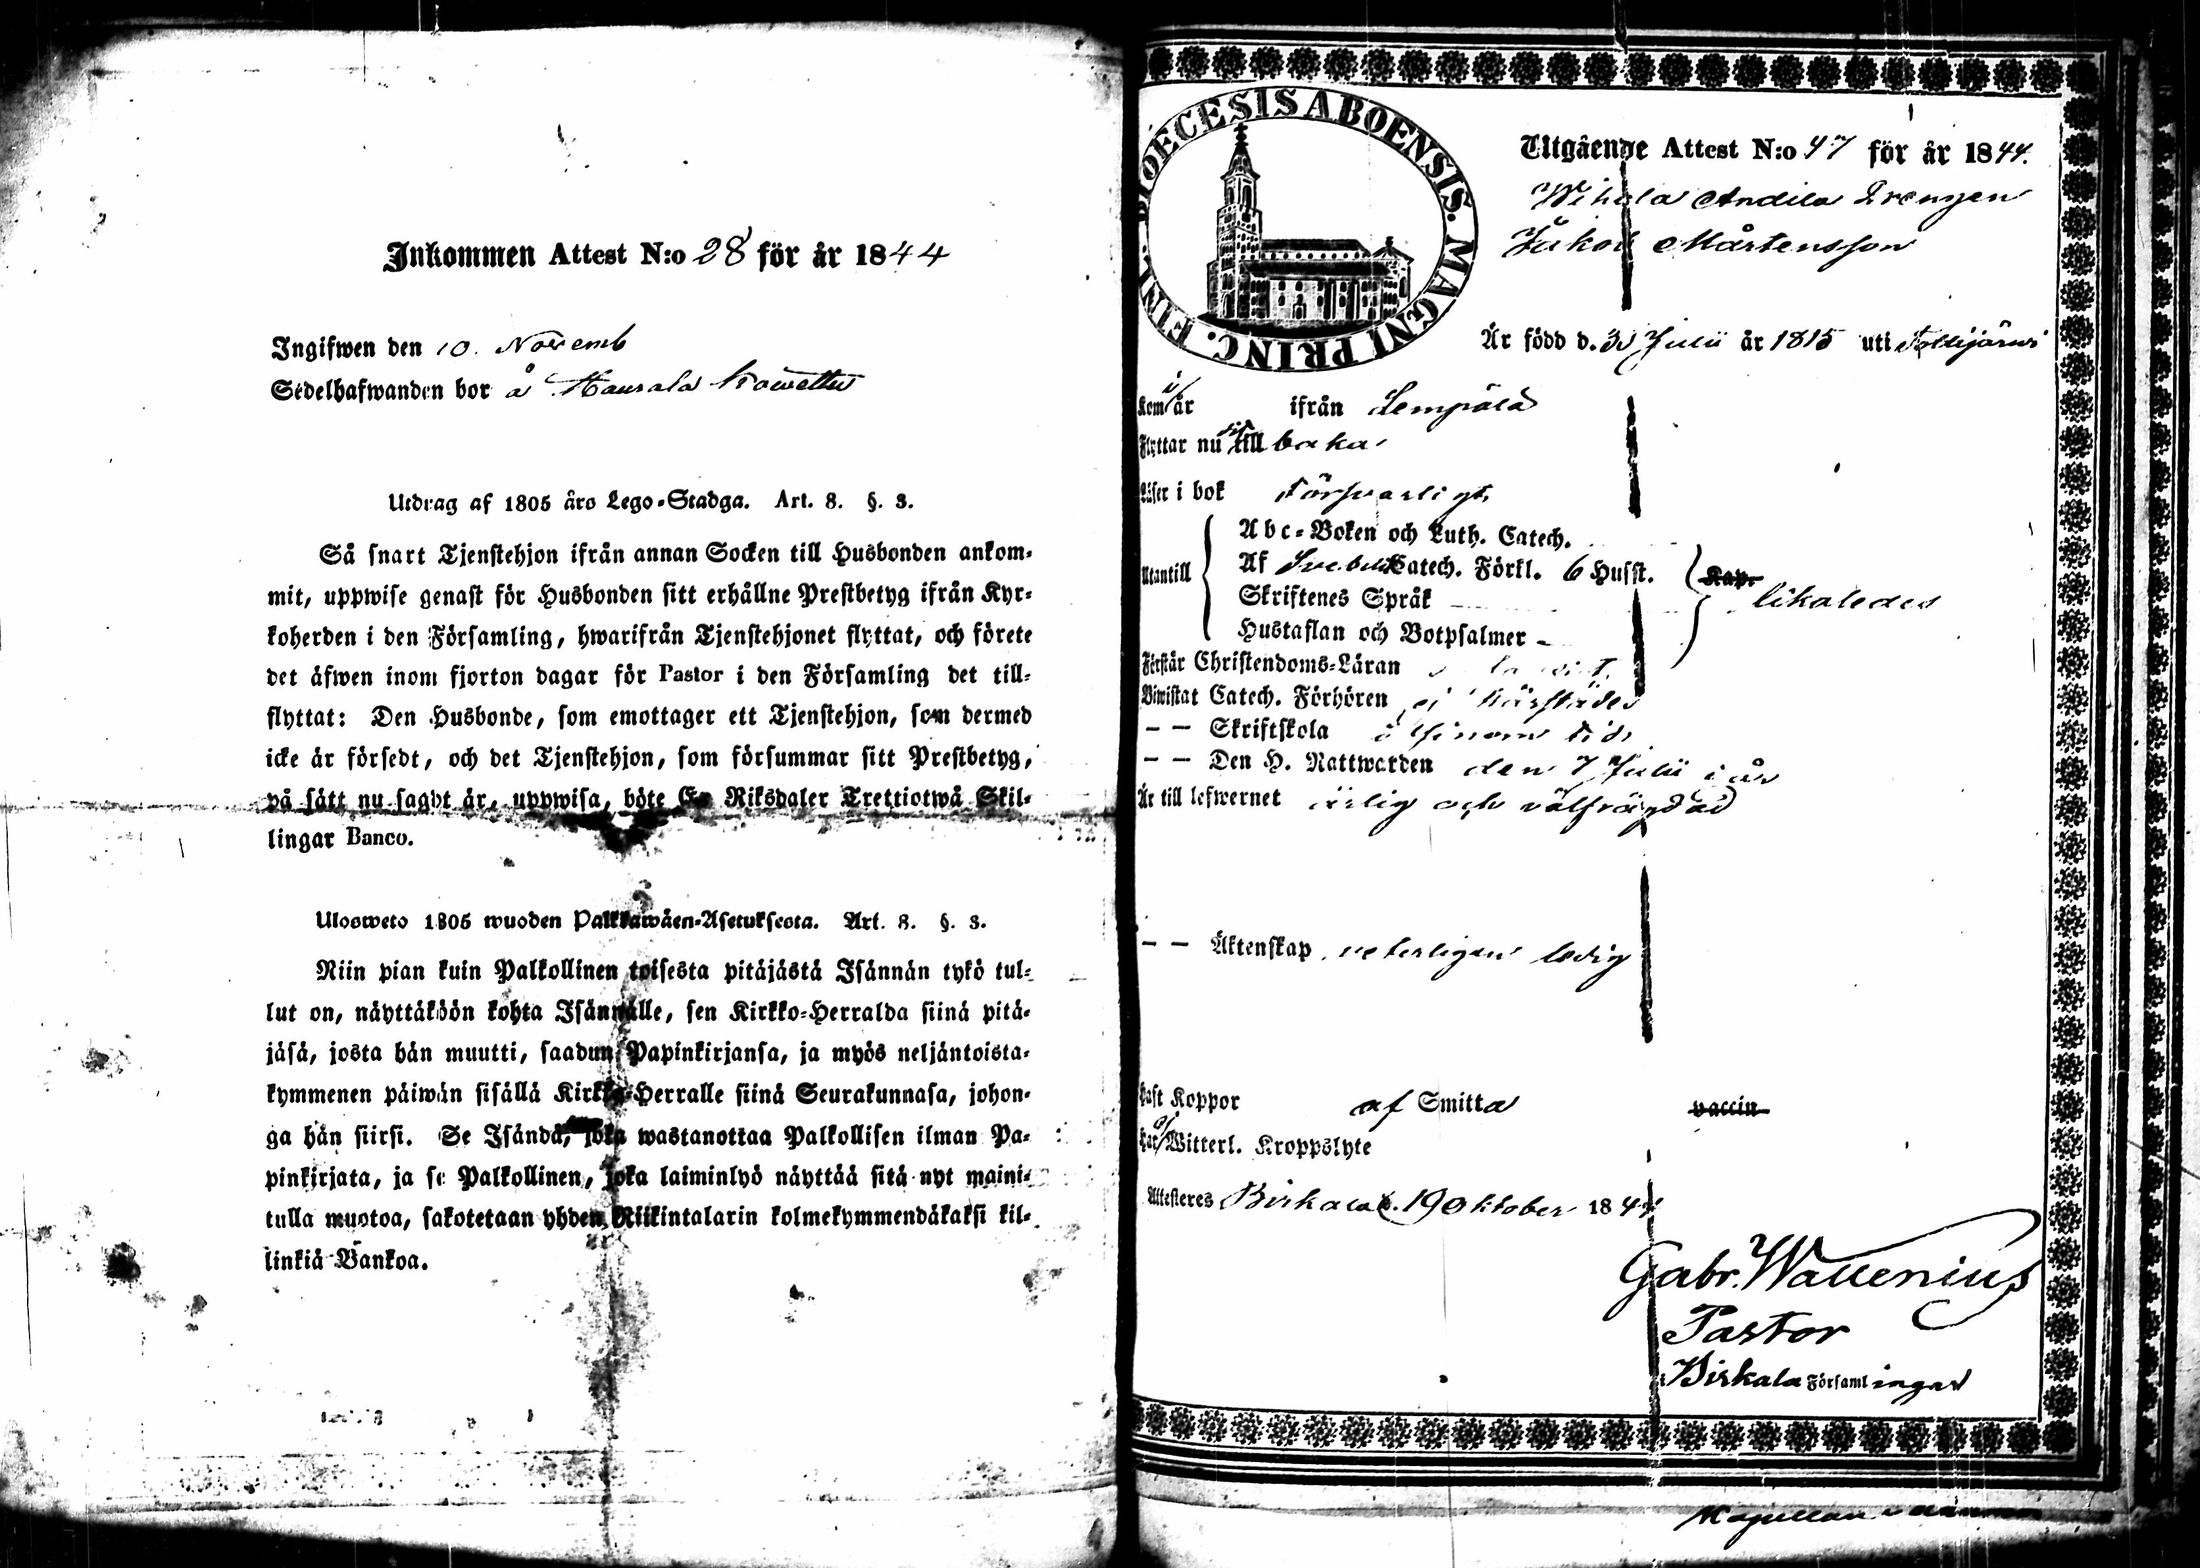 Inkommen Attest N:o 28 för år 1844
Ingifwen den 10. Novemb
Sedelhafwanden bor å Haurala
Utdrag af 1805 års Lego-Stadga. Art. 8. §. 3.
Så snart Tjenstehjon ifrån annan Socken till Husbonden ankom-
mit, uppwise genast för Husbonden sitt erhållne Prestbetyg ifrån Kyr-
koherden i den Församling, hwarifrån Tjenstehjonet flyttat, och förete
det äfwen inom fjorton dagar för Pastor i den Församling det till-
flyttat: Den Husbonde, som emottager ett Tjenstehjon, som dermed
icke är försedt, och det Tjenstehjon, som försummar sitt Prestbetyg,
på sätt nu sagdt är, uppwisa, böte En Riksdaler Trettiotwå Skil-
lingar Banco.
Ulosweto 1805 wuoden Palkkawäen-Asetuksesta. Art. 8. §. 3.
Niin pian kuin Palkollinen toisesta pitäjästä Isännän tykö tul-
lut on, näyttäköön kohta Isännälle, sen Kirkko-Herralda siinä pitä-
jäsä, josta hän muutti, saadun Papinkirjansa, ja myös neljäntoista-
kymmenen päiwän sisällä Kirkko-Herralle siinä Seurakunnasa, johon-
ga hän siirsi. Se Isändä, joka wastanottaa Palkollisen ilman Pa-
pinkirjata, ja se Palkollinen, joka laiminlyö näyttää sitä nyt maini-
tulla muotoa, sakotetaan yhden Riikintalarin kolmekymmendäkaksi kil-
linkiä Bankoa.
DIOECESIS ABOENSIS. MAGNI PRINC. FINL.
Utgående Attest N:o 47 för år 1844.
Wihola Andila Drengen
Jakob Mårtensson
Är född d. Julii år 1815 uti
Kom i år ifrån Lempälä
Flyttar nu dit till baka
Läser i bok Försvarligt
Abc-Boken och Luth. Catech.
Utantill Af Svebelii Catech. Förkl. 6 Husst. Kap.
Skriftenes Språk likaledes
Hustaflan och Botpsalmer
Förstår Christendoms-Läran
Biwistat Catech. Förhören ej härstädes
— — Skriftskola i sinom tid
— — Den H. Nattwarden den 7 Julii i år
Är till lefwernet ärlig och välfrägdad
— — Äktenskap veterligen ledig
Haft Koppor af Smitta vaccin
Har ej Witterl. Kroppslyte
Attesteres Birkala d. 19 Oktober 1844
Gabr. Wallenius
Pastor
i Birkala Församlingar